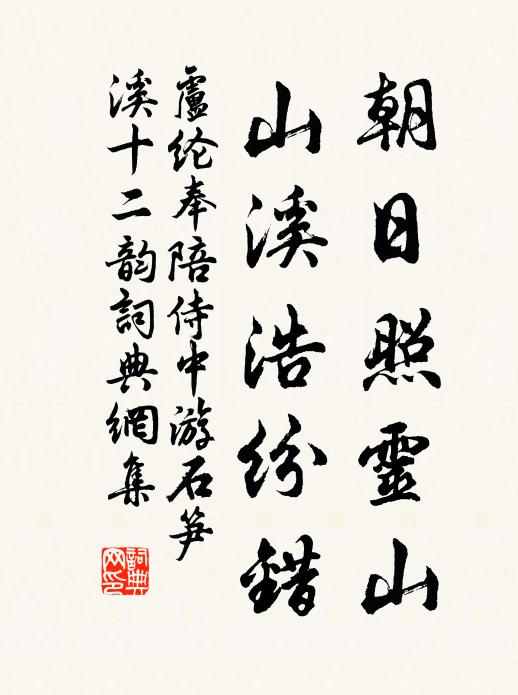 朝日照靈山
山溪浩紛錯
盧纶奉陪侍中游石笋
溪十二韵詞典網集
詞典网印